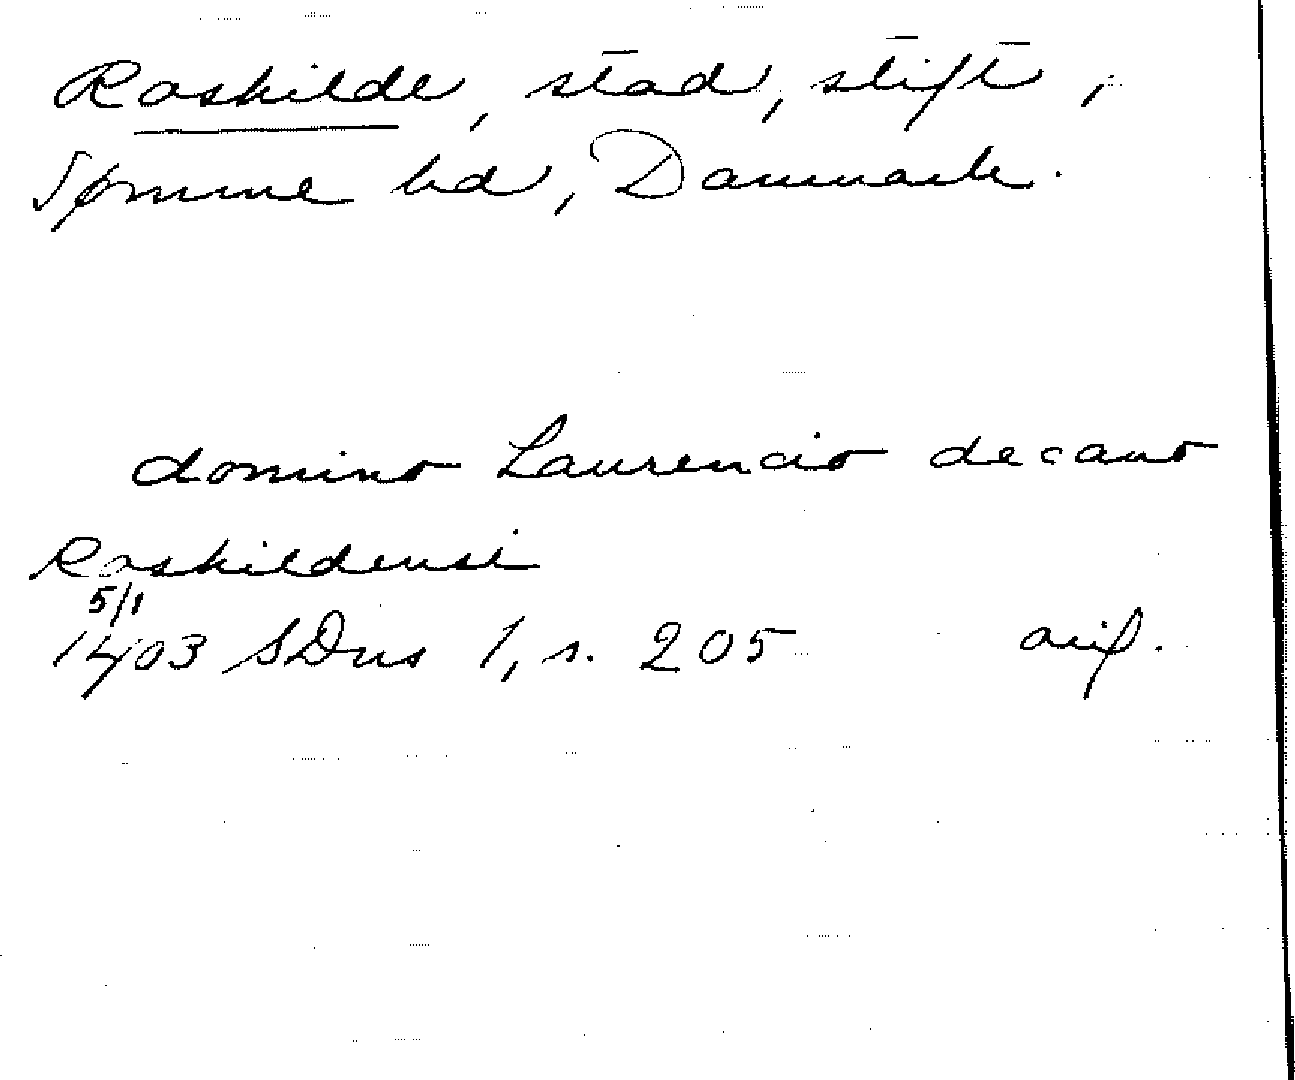 Roskilde, stad, stift,
Sømme hd, Danmark.
domino Laurencio decano
Roskildensi
5/1
1403 SDns 1, s. 205 avs.